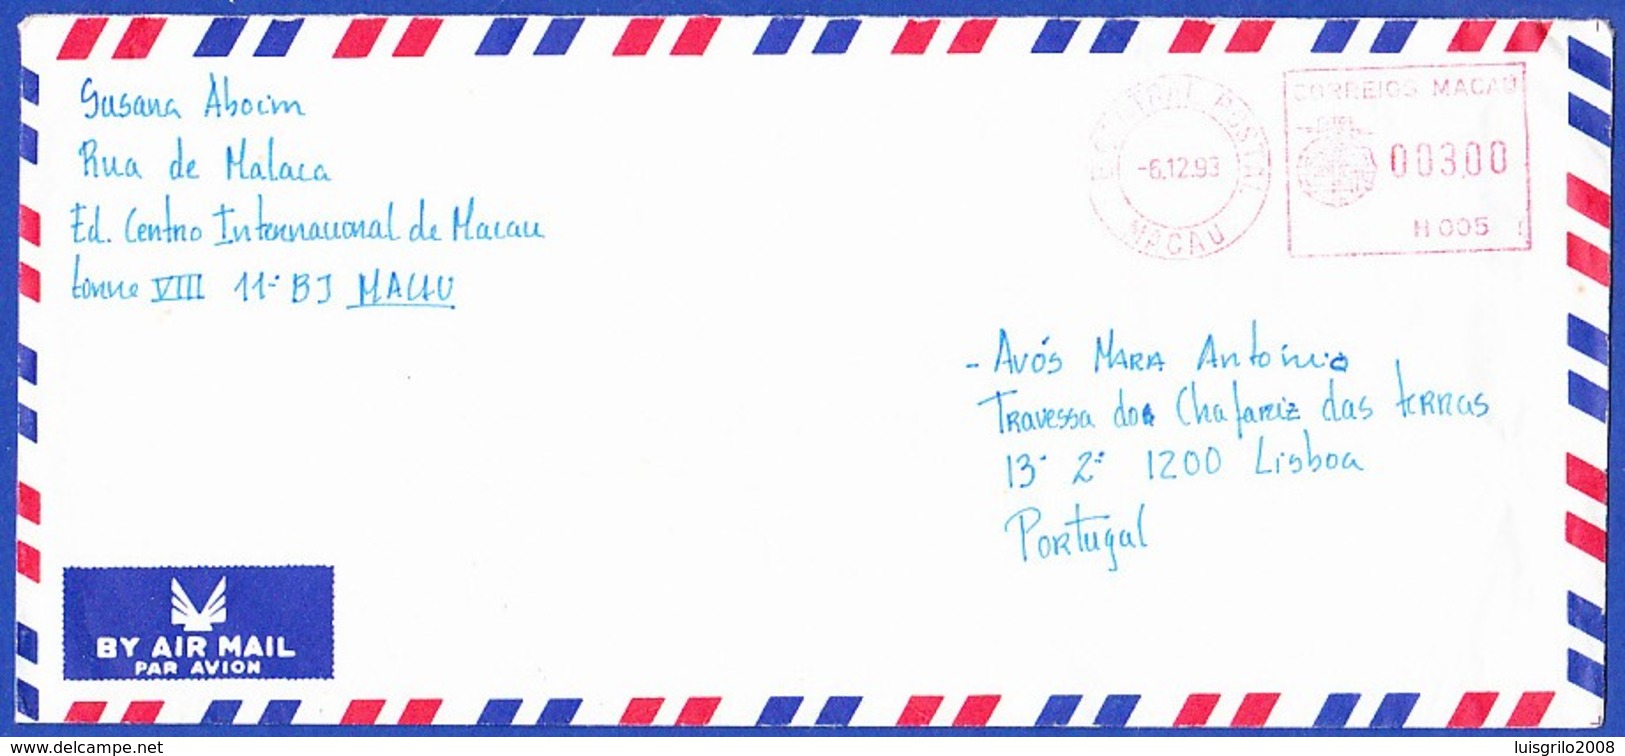 Susana Aboim
Rua de Malaca
Ed. Centro Internacional de Macau
torre VIII 11º BJ MACAU
CENTRAL POSTAL
-6.12.93
MACAU
CORREIOS MACAU
003,00
H 005
- Avós Maria António
Travessa do Chafariz das terras
13º 2º 1200 Lisboa
Portugal
BY AIR MAIL
PAR AVION
www.delcampe.net
luisgrilo2008